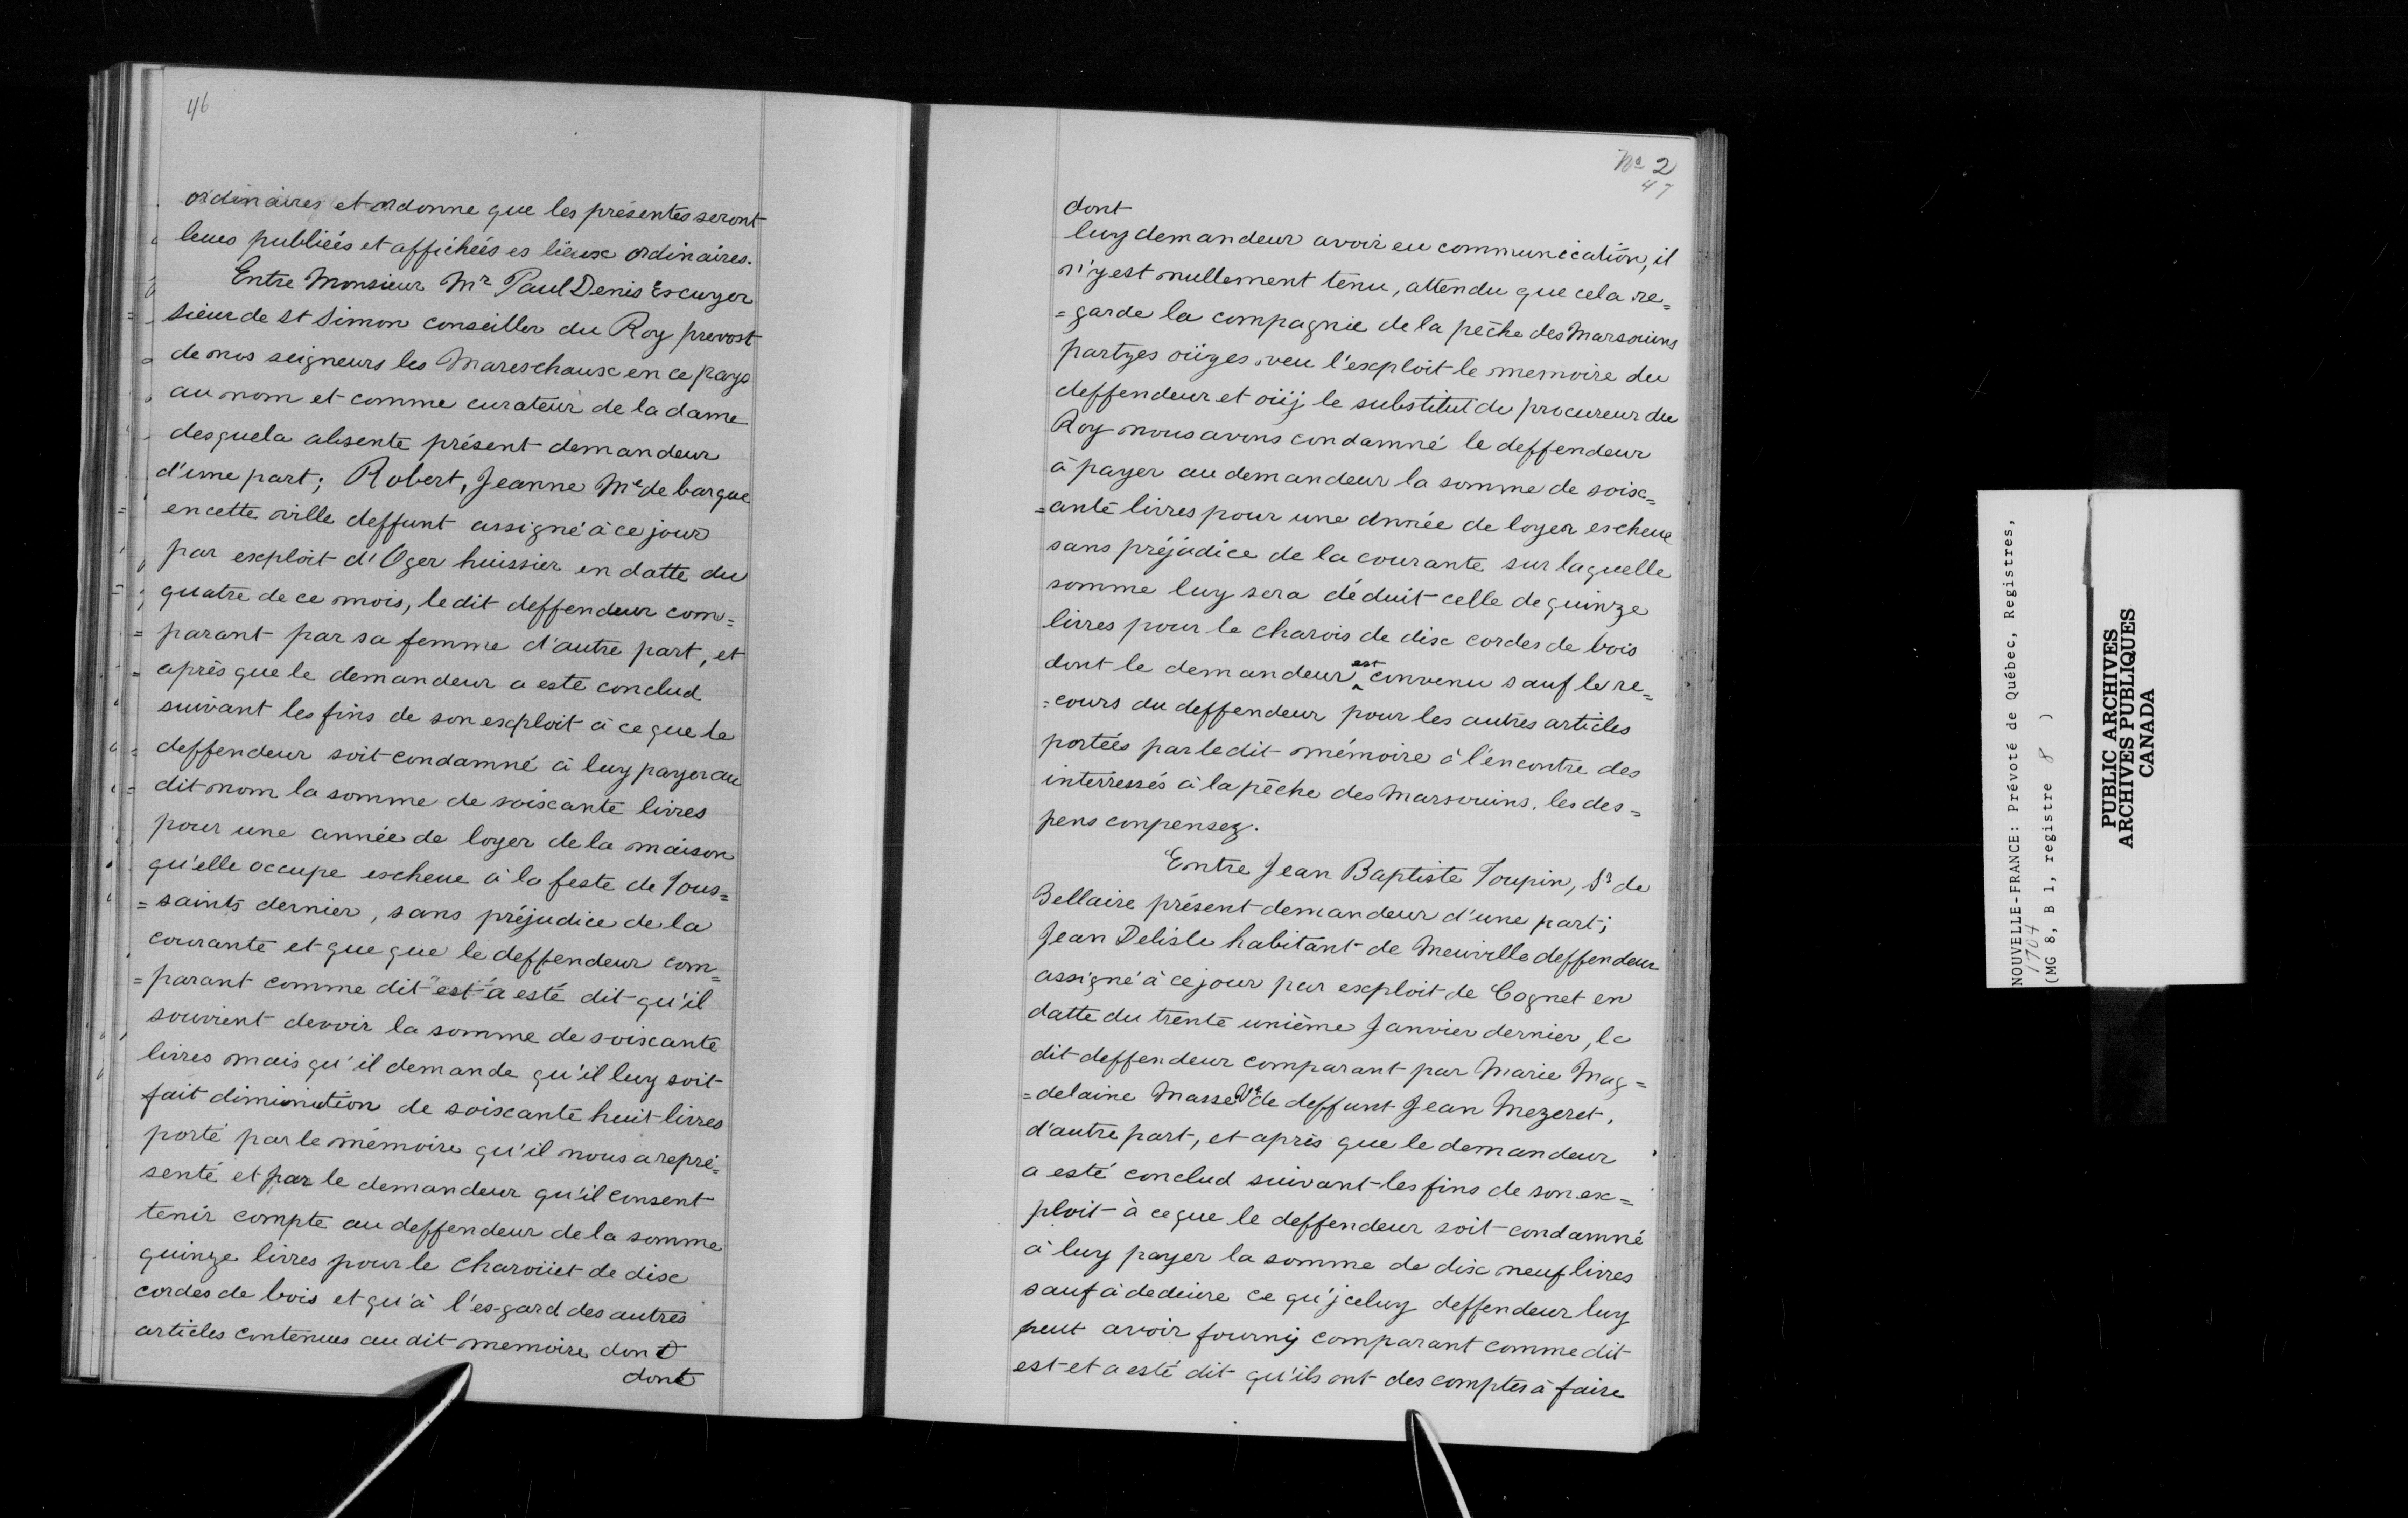 46
ordinaires et ordonne que les présentes seront
leues publiées et affichées es lieux ordinaires.
Entre Monsieur Mr Paul Denis Escuyer
sieur de St Simon conseiller du Roy prevost
de nos seigneurs les Mareschaux en ce pays
au nom et comme curateur de la dame
desquela absente présent demandeur
d'une part; Robert, Jeanne Me de barque
en cette ville deffunt assigné à ce jour
par exploit d'Oger huissier en datte du
quatre de ce mois, le dit deffendeur com=
=parant par sa femme d'autre part, et
après que le demandeur a este conclud
suivant les fins de son exploit à ce que le
deffendeur soit condamné à luy payer au
dit nom la somme de soixante livres
pour une année de loyer de la maison
qu'elle occupe escheue à la feste de Tous=
=saints dernier, sans préjudice de la
courante et que que le deffendeur com=
=parant comme dit est a esté dit qu'il
souvient devoir la somme de soixante
livres mais qu'il demande qu'il luy soit
fait diminution de soixante huit livres
porté par le mémoire qu'il nous a repré=
senté et par le demandeur qu'il consent
tenir compte au deffendeur de la somme
quinze livres pour le charoüet de dix
cordes de bois et qu'à l'es-gard des autres
articles contenues au dit memoire dont
dont
No 2
47
dont
luy demandeur avoir eu communication, il
n'y est nullement tenu, attendu que cela re=
=garde la compagnie de la pêche des Marsouins
partyes oüyes veu l'exploit le memoire du
deffendeur et oüij le substitut du procureur du
Roy nous avons condamné le deffendeur
à payer au demandeur la somme de soix=
=ante livres pour une année de loyer escheue
sans préjudice de la courante sur laquelle
somme luy sera déduit celle de quinze
livres pour le charois de dix cordes de bois
dont le demandeur est convenu sauf le re=
=cours du deffendeur pour les autres articles
portées par le dit mémoire à l'encontre des
interressés à la pêche des Marsouins. les des=
pens conpensez.
Entre Jean Baptiste Toupin, Sr de
Bellaire présent demandeur d'une part;
Jean Delisle habitant de Neuville deffendeur
assigné à ce jour par exploit de Cognet en
datte du trente unième Janvier dernier, le
dit deffendeur comparant par Marie Mag=
=delaine Masse Ve de deffunt Jean Mezeret,
d'autre part, et après que le demandeur
a esté conclud suivant les fins de son ex=
ploit à ce que le deffendeur soit condamné
à luy payer la somme de dix neuf livres
sauf à deduire ce qu'jceluy deffendeur luy
peut avoir fournij comparant comme dit
est et a esté dit qu'ils ont des comptes à faire
NOUVELLE-FRANCE: Prévoté de Québec, Registres,
1704
(MG 8, B 1, registre 8 )
PUBLIC ARCHIVES
ARCHIVES PUBLIQUES
CANADA